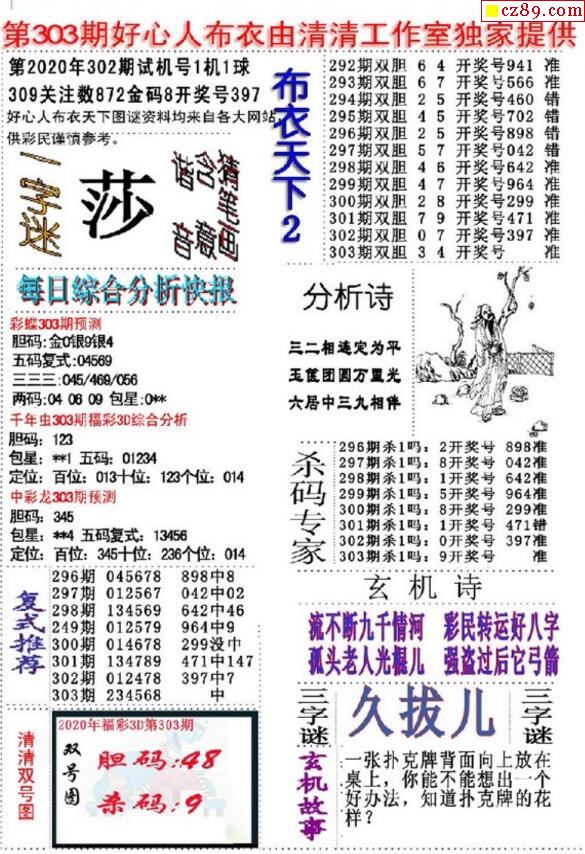 cz89.com
第303期好心人布衣由清清工作室独家提供
第2020年302期试机号1机1球
309关注数872金码8开奖号397
好心人布衣天下图谜资料均来自各大网站
供彩民谨慎参考。
一字迷
莎
猜笔画
含意
谐音
布衣天下2
292期双胆 6 4 开奖号941 准
293期双胆 6 7 开奖号566 准
294期双胆 2 5 开奖号460 错
295期双胆 4 5 开奖号702 错
296期双胆 2 5 开奖号898 错
297期双胆 5 7 开奖号042 错
298期双胆 4 6 开奖号642 准
299期双胆 4 7 开奖号964 准
300期双胆 2 8 开奖号299 准
301期双胆 7 9 开奖号471 准
302期双胆 0 7 开奖号397 准
303期双胆 3 4 开奖号 准
每日综合分析快报
彩蝶303期预测
胆码:金0银9银4
五码复式:04569
三三三:045/469/056
两码:04 06 09 包星:0**
千年虫303期福彩3D综合分析
胆码: 123
包星: **1 五码: 01234
定位: 百位: 013十位: 123个位: 014
中彩龙303期预测
胆码: 345
包星: **4 五码复式: 13456
定位: 百位: 345十位: 236个位: 014
分析诗
三二相连定为平
玉筐团圆万里光
六居中三九相伴
杀码专家
296期杀1吗: 2开奖号 898准
297期杀1吗: 8开奖号 042准
298期杀1吗: 1开奖号 642准
299期杀1吗: 5开奖号 964准
300期杀1吗: 8开奖号 299准
301期杀1吗: 1开奖号 471错
302期杀1吗: 0开奖号 397准
303期杀1吗: 9开奖号 准
复式推荐
296期 045678 898中8
297期 012567 042中02
298期 134569 642中46
249期 012579 964中9
300期 014678 299没中
301期 134789 471中147
302期 012478 397中7
303期 234568 中
玄机诗
流不断九千情河 彩民转运好八字
孤头老人光棍儿 强盗过后它弓箭
清清双号图
2020年福彩3D第303期
双号图
胆码:48
杀码:9
三字谜
久拔儿
三字谜
玄机故事
一张扑克牌背面向上放在
桌上，你能不能想出一个
好办法，知道扑克牌的花
样？